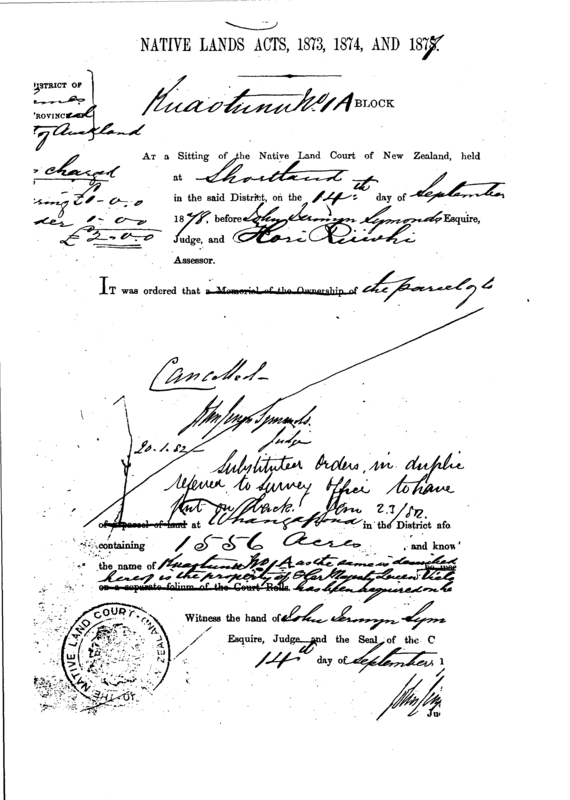 NATIVE LANDS ACTS, 1873, 1874, AND 1877.
ISTRICT OF
Kuaotunu No 1A BLOCK
ROVINC
of Auckland
AT a Sitting of the Native Land Court of New Zealand, held
charged
at Shortland
in the said District, on the 14th day of September
1878. before John Jermyn Symonds Esquire,
£2-0.0
Judge, and Hori Riiwhi
Assessor.
IT was ordered that a Memorial of the Ownership of the parcel of
Cancelled
John Jermyn Symonds.
Judge
20.1.82
Substituted Orders, in duplic
referred to Survey Office to have
put on back. 23/82
or a parcel of land at Whangapoua in the District afo
containing 1556 Acres , and know
the name of Kuaotunu No 1A as the same is described
hereof is the property of Her Majesty Queen Victo
on a separate folium of the Court Rolls. has been acquired on
Witness the hand of John Jermyn Sym
Esquire, Judge and the Seal of the C
14th day of September, 1
John Jer
Ju
THE NATIVE LAND COURT OF NEW ZEALAND